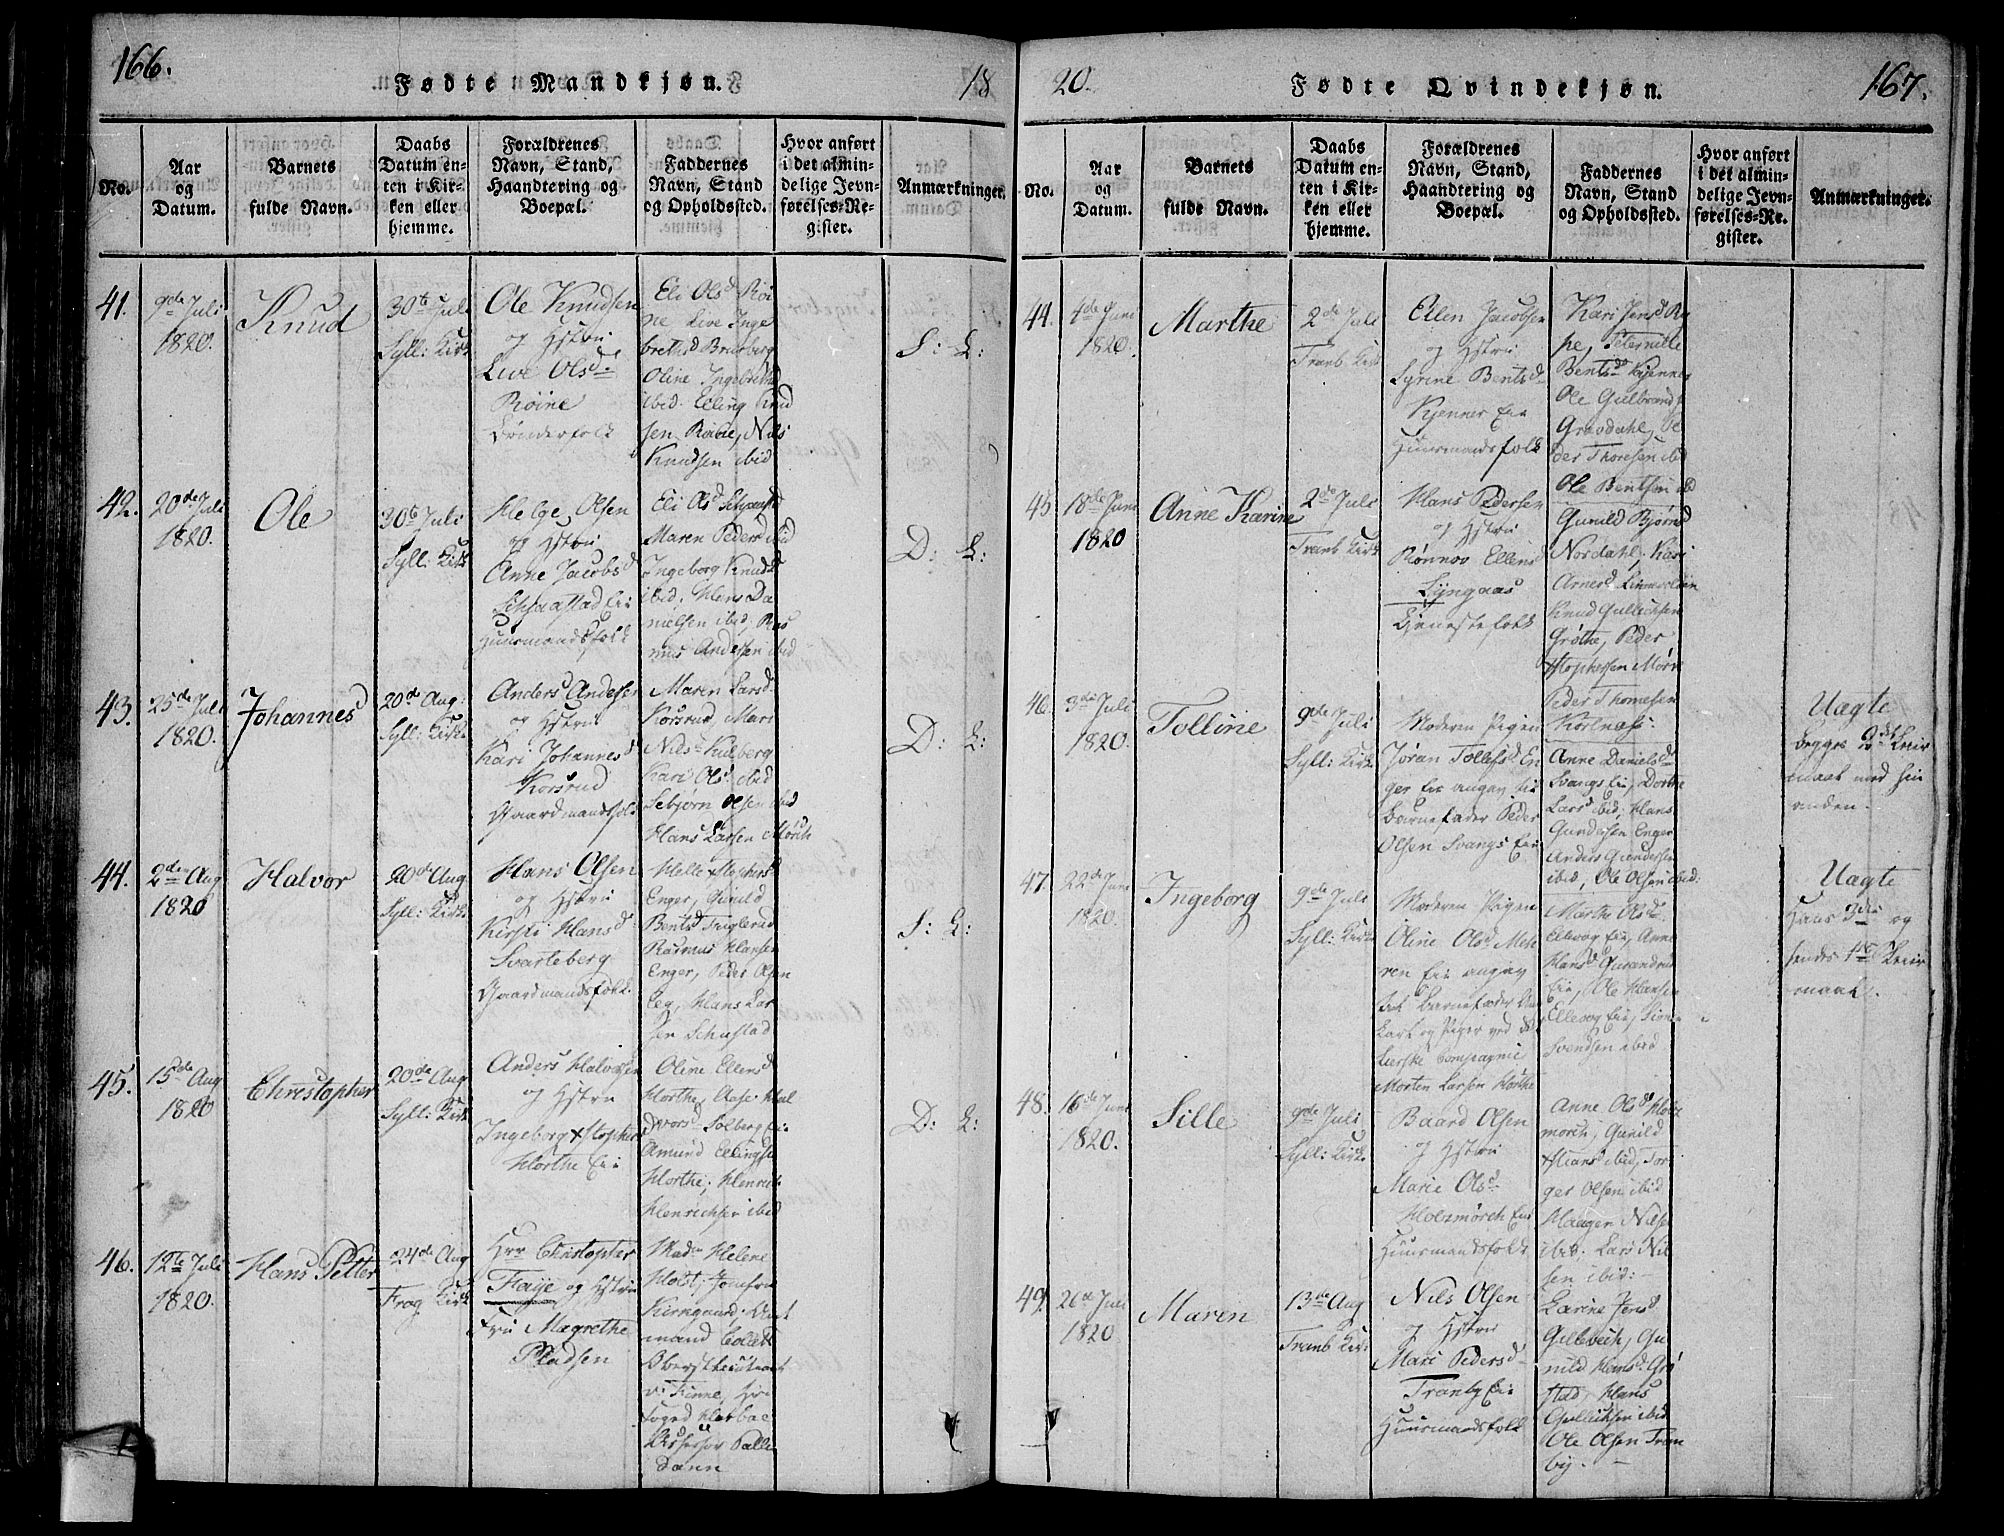 166.
Fødte Mandkjøn.
18
No.
Aar
og
Datum.
Barnets
fulde Navn.
Daabs
Datum en-
ten i Kir-
ken eller
hjemme.
Forældrenes
Navn, Stand,
Haandtering og
Boepæl.
Faddernes
Navn, Stand
og Opholdssted.
Hvor anført
i det almin-
delige Jevn-
førelses-Re-
gister.
Anmærkninger.
41.
9de Juli
1820.
Knud
30te Juli
Syll: Kirk
Ole Knudsen
og Hstru
Live Olsd
Røine
Bønderfolk
Eli Olsd Røi
ne Live Inge
brethsd Brusberg
Oline Ingebrethsd
ibid. Elling Knud
sen Rabie, Nils
Knudsen ibid
S: L:
42.
20de Juli
1820.
Ole
30te Juli
Syll: Kirk
Helge Olsen
og Hstru
Anne Jacobsd
Schjaastad Eie
Huusmandsfolk
Eli Olsd Schjaastad
Maren Pedersd ibid
Ingeborg Knudsd
ibid, Hans Da
nielsen ibid, Ras
mus Andersen ibid
D: L:
43.
25de Juli
1820.
Johannes
20de Aug:
Syll: Kirk.
Anders Andersen
og Hstru
Kari Johannesd
Korsrud
Gaardmandsfolk
Maren Larsd
Korsrud Mari
Nilsd Kulberg
Kari Olsd ibid
Sebjørn Olsen ibid
Hans Larsen Mørch
D: L:
44.
2den Aug
1820
Halvor
20de Aug
Syll: Kirk
Hans Olsen
og Hstru
Kirsti Hansd
Svarteberg
Gaardmandsfolk.
Helle Xstophersd
Enger, Gunild
Bentsd Fuglerud
Rasmus Hansen
Enger, Peder Olsen
Eeg, Hans Lar
sen Schiestad
S: L:
45.
15de Aug
1820
Christopher
20de Aug
Syll: Kirk
Anders Halvorsen
og Hstru
Ingeborg Xstophersd
Horthe Eie
Oline Ellensd
Horthe, Aase Hal
dvorsd Solberg Eie
Amund Ellingsen
Horthe, Henrik
Henrichsen ibid
D: L:
46.
12te Juli
1820.
Hans Petter
24de Aug
Frog Kirk
Hrr Christopher
Faije og Hstru
Fru Magrethe
Pladsen
Madm Helene
Holst, Jomfru
Kierrgaard,
mand Colett
Oberstleiutnant
v: Finne, Hr
Foged Horboe
Assessor Palle
Dann
20.
Fødte Qvindekjøn.
167.
No.
Aar
og
Datum.
Barnets
fulde Navn.
Daabs
Datum en-
ten i Kir-
ken eller
hjemme.
Forældrenes
Navn, Stand,
Haandtering og
Boepæl.
Faddernes
Navn, Stand
og Opholdssted.
Hvor anført
i det almin-
delige Jevn-
førelses-Re-
gister.
Anmærkninger.
44.
4de Juni
1820.
Marthe
2de Juli
Tranb Kirk
Ellen Jacobsen
og Hstru
Syrine Bentsd
Kjenner Eie
Huusmandsfolk
Kari Jensd Ry
pe, Peternille
Bentsd Kjenner
Ole Gulbrands
Gravdahl, Pe
der Thoresen ibid
Ole Bentsen ibid
45
18de Juni
1820
Anne Karine
2de Juli
Tranb Kirk
Hans Pedersen
og Hstru
Rønnov Ellensd
Lyngaas
Tjenestefolk
Gunild Bjørnsd
Nordahl, Kari
Arnesd
Knud Gullichsen
Grøthe, Peder
Xstophersen Mørk
46.
3die Juli
1820.
Tolline
9de Juli
Syll: Kirk
Moderen Pigen
Jøran Tollefsd En
ger Eie angav til
Barnefader Peder
Olsen Svangs Eie
Peder Thomesen
Korsnæs:
Anne Danielsd
Svangs Eie, Dorthe
Larsd ibid, Hans
Gundersen Enger
Anders Gundersen
ibid, Ole Olsen ibid:
Uægte
begges 2det Leier
maal med hin
anden.
47.
22de Juni
1820.
Ingeborg
9de Juli
Syll: Kirk
Moderen Pigen
Oline Olsd Meh
ren Eie angav
til Barnefader Un
karl og Jæger ved
Lierske Compagnie
Morten Larsen Horthe
Marthe Olsd
Ellevog Eie, Anne
Hansd Gunandrud
Eie, Ole Hansen
Ellevog Eie, Simen
Svendsen ibid
Uægte
Hans 3die og
hendes 1ste Leier
maal.
48.
16de Juni
1820.
Sille
9de Juli
Syll: Kirk.
Baard Olsen
og Hstru
Marie Olsd
Holsmørch Eie
Huusmandsfolk
Anne Olsd Hols
mørch, Gunild
Xstiansd ibid, Tor
ger Olsen ibid
Haagen Nilsen
ibid, Lars Nil
sen ibid:
49.
26de Juli
1820
Maren
13de Aug
Tranb Kirk
Nils Olsen
og Hstru
Mari Pedersd
Tranby Eie
Huusmandsfolk
Karine Jensd
Gillebech, Gu
nild Hansd Grø
stad, Hans
Gullichsen ibid
Ole Olsen Tran
by. -